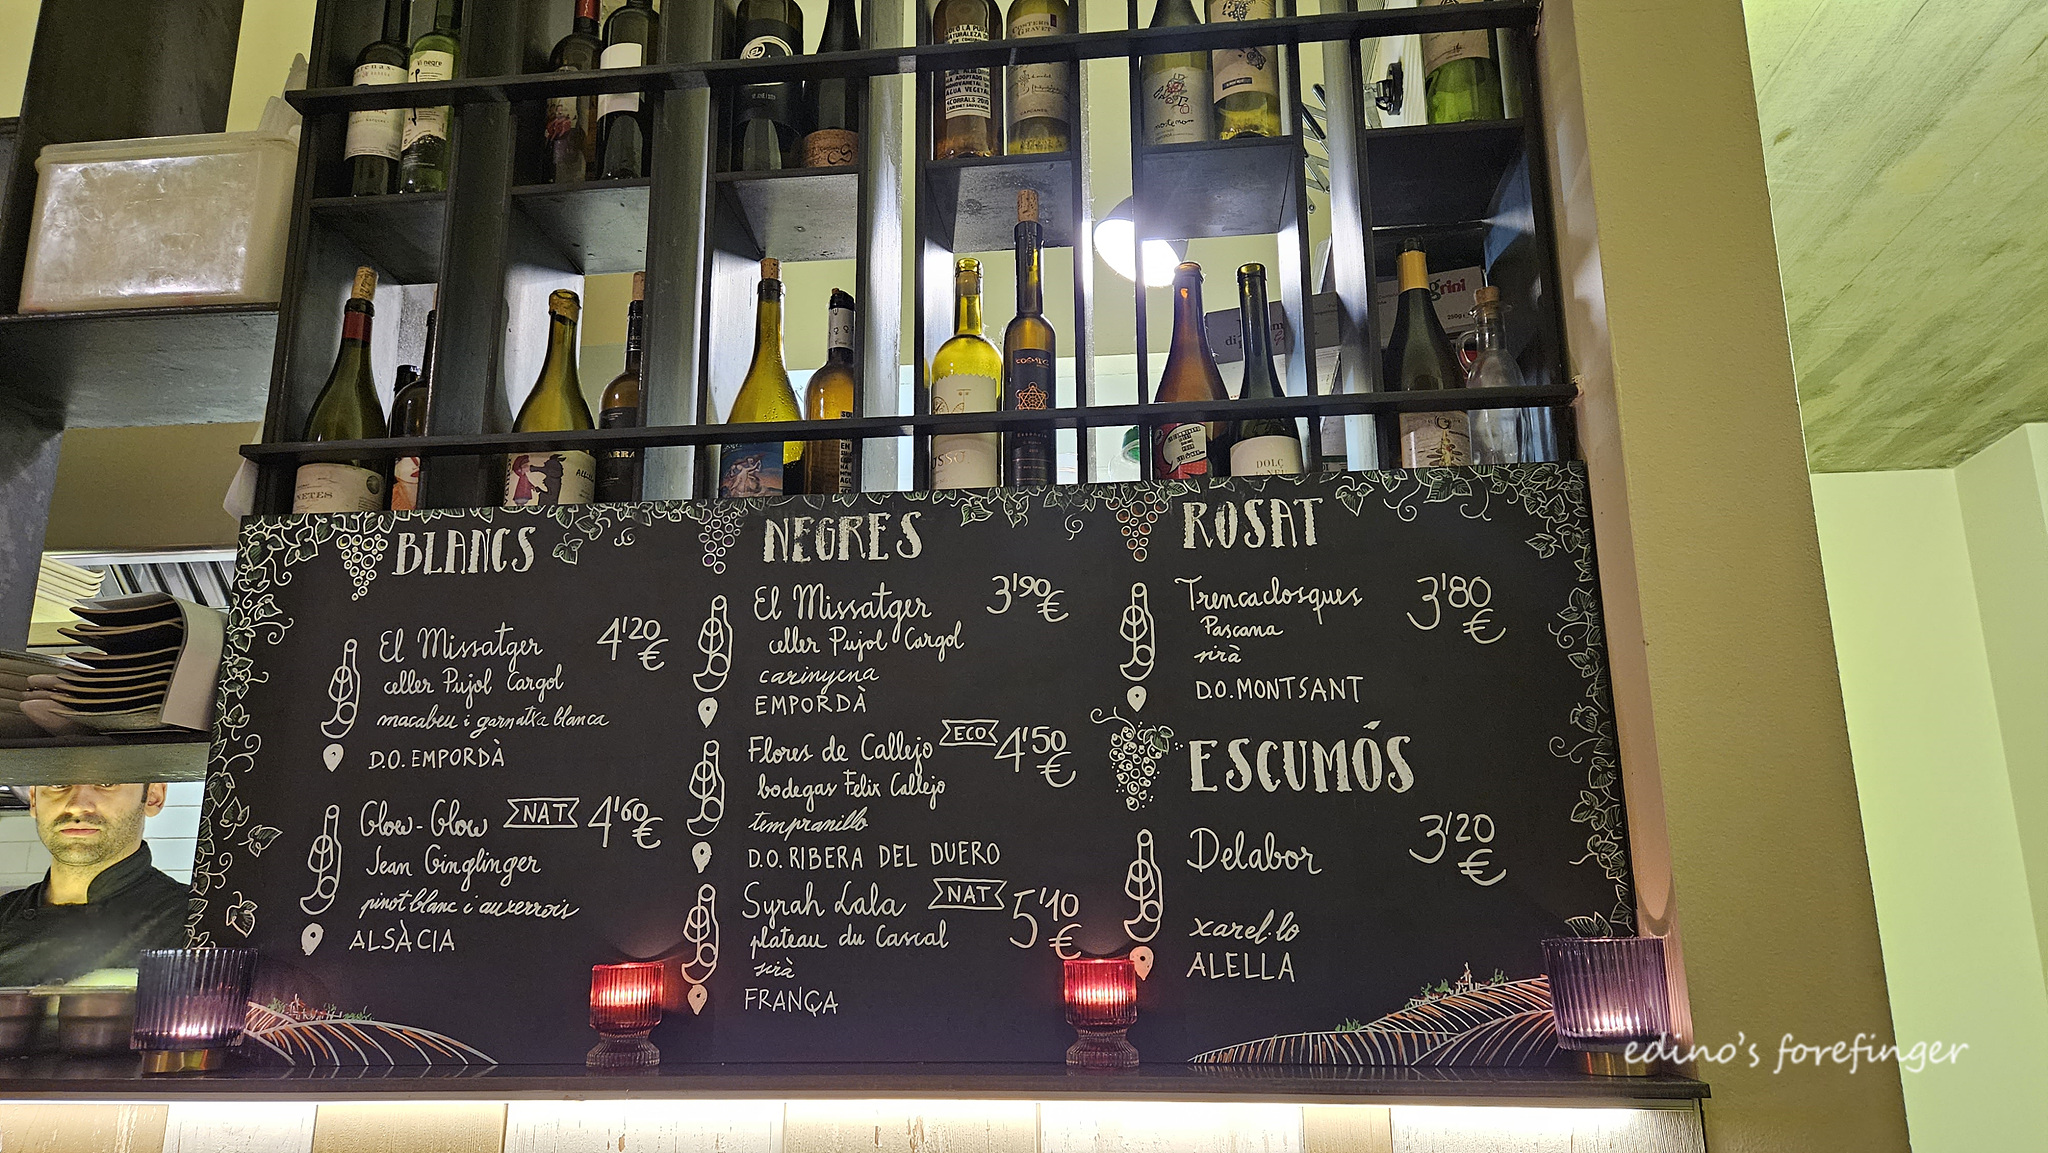 vi negre
EL
NATURALEZA
HA ADOPTADO
AGUA VEGETAL
COSTERS
GRAVET
nostrem
grini
250g
COSMIC
DOLÇ
BLANCS
El Missatger 4'20 €
celler Pujol Cargol
macabeu i garnatxa blanca
D.O. EMPORDÀ
Glow-Glow NAT 4'60 €
Jean Ginglinger
pinot blanc i auxerrois
ALSÀCIA
NEGRES
El Missatger 3'90 €
celler Pujol Cargol
carinyena
EMPORDÀ
Flores de Callejo ECO 4'50 €
bodegas Felix Callejo
tempranillo
D.O. RIBERA DEL DUERO
Syrah Lala NAT 5'10 €
plateau du Cascal
sirà
FRANÇA
ROSAT
Trencaclosques 3'80 €
Pascana
sirà
D.O. MONTSANT
ESCUMÓS
Delabor 3'20 €
xarel·lo
ALELLA
edino's forefinger